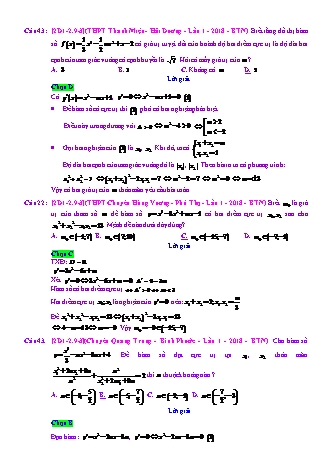 Câu 43: [2D1-2.9-3] (THPT Thanh Miện - Hải Dương - Lần 1 - 2018 - BTN) Biết rằng đồ thị hàm
số f(x) = 1/3 x³ - 1/2 mx² + x - 2 có giá trị tuyệt đối của hoành độ hai điểm cực trị là độ dài hai
cạnh của tam giác vuông có cạnh huyền là √7. Hỏi có mấy giá trị của m?
A. 3 B. 1 C. Không có m D. 2
Lời giải
Chọn D
Có y' = x² - mx + 1 y' = 0 ⇔ x² - mx + 1 = 0 (1)
• Để hàm số có cực trị thì (1) phải có hai nghiệm phân biệt
Điều này tương đương với Δ > 0 ⇔ m² - 4 > 0 ⇔ [m > 2 m < -2
• Gọi hai nghiệm của (1) là x₁, x₂. Khi đó, ta có {x₁ + x₂ = m x₁x₂ = 1
Độ dài hai cạnh của tam giác vuông đó là |x₁|, |x₂|. Theo bài ra ta có phương trình:
x₁² + x₂² = 7 ⇔ (x₁ + x₂)² - 2x₁x₂ = 7 ⇔ m² - 2 = 7 ⇔ m² = 9 ⇔ m = ±3
Vậy có hai giá trị của m thỏa mãn yêu cầu bài toán
Câu 22: [2D1-2.9-3] (THPT Chuyên Hùng Vương - Phú Thọ - Lần 1 - 2018 - BTN) Biết m₀ là giá
trị của tham số m để hàm số y = x³ - 3x² + mx - 1 có hai điểm cực trị x₁, x₂ sao cho
x₁² + x₂² - x₁x₂ = 13. Mệnh đề nào dưới đây đúng?
A. m₀ ∈ (-1;7) B. m₀ ∈ (7;10) C. m₀ ∈ (-15;-7) D. m₀ ∈ (-7;-1)
Lời giải
Chọn C
TXĐ: D = ℝ
y' = 3x² - 6x + m
Xét y' = 0 ⇔ 3x² - 6x + m = 0; Δ' = 9 - 3m
Hàm số có hai điểm cực trị ⇔ Δ' > 0 ⇔ m < 3
Hai điểm cực trị x₁; x₂ là nghiệm của y' = 0 nên: x₁ + x₂ = 2; x₁.x₂ = m/3
Để x₁² + x₂² - x₁x₂ = 13 ⇔ (x₁ + x₂)² - 3x₁.x₂ = 13
⇔ 4 - m = 13 ⇔ m = -9. Vậy m₀ = -9 ∈ (-15;-7)
Câu 43. [2D1-2.9-3] (Chuyên Quang Trung - Bình Phước - Lần 1 - 2018 - BTN) Cho hàm số
y = x³/3 - ax² - 3ax + 4. Để hàm số đạt cực trị tại x₁, x₂ thỏa mãn
(x₁² + 2ax₂ + 9a)/a² + a²/(x₂² + 2ax₁ + 9a) = 2 thì a thuộc khoảng nào?
A. a ∈ (-3; -5/2) B. a ∈ (-5; -7/2) C. a ∈ (-2; -1) D. a ∈ (-7/2; -3)
Lời giải
Chọn B
Đạo hàm: y' = x² - 2ax - 3a, y' = 0 ⇔ x² - 2ax - 3a = 0 (1)